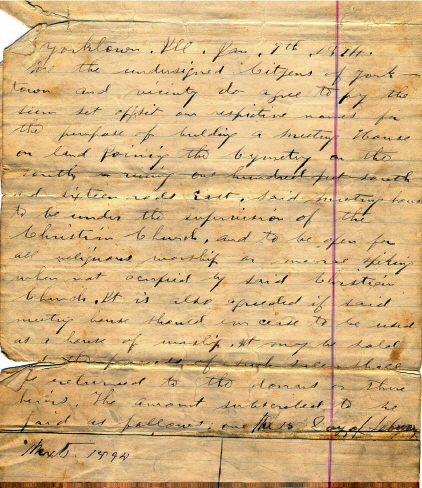 Yorktown, Ill. Jan. 9th,
We the undersigned Citzens of York-
town and vicinity do agree to pay the
sum set opsit our respictive names for
the purpose of building a meeting House
on land Joining the Cymetry on the
South runing one hundred feet south
and sixteen rods East, Said meeting house
to be under the supervision of the
Christian Church, and to be open for
all religious worship or moral speking
when not occupied by said Christian
Church. It is also agreeded if said
meeting house should in case to be used
as a house of worship. It may be sold
and the proceeds of
be returned to the donors or there
heirs. The amount subscribed to be
paid as follows; one the 15 Day of
1892